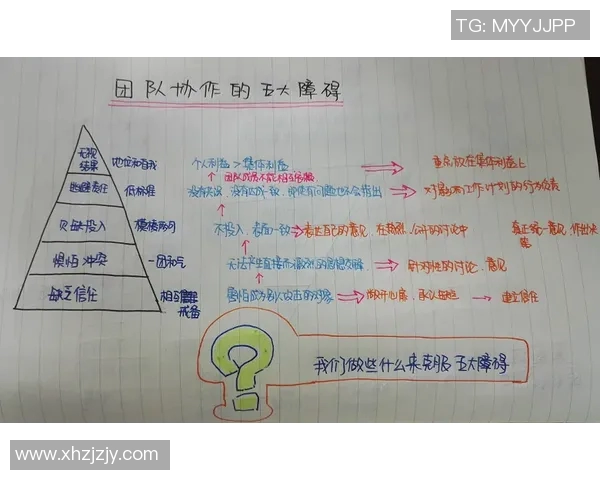 TG: MYYJJPP
团队协作的五大障碍
无视结果
地位和自我
个人利益 > 集体利益
重点放在集体利益上
团队成员不能相互
逃避责任
低标准
没有共识，没有达成一致，即使有问题也不会指出
对影响工作计划的行为负责
欠缺投入
模棱两可
不投入，表面一致
表达自己的意见，在热烈、公开的讨论中
真正统一意见，作出决策
惧怕冲突
一团和气
无法产生直接而激烈的思想交锋
针对性的讨论、意见
缺乏信任
相互戒备
害怕成为别人攻击的对象
敞开心扉，承认缺点
建立信任
我们做些什么来克服五大障碍
www.xhzjzjy.com